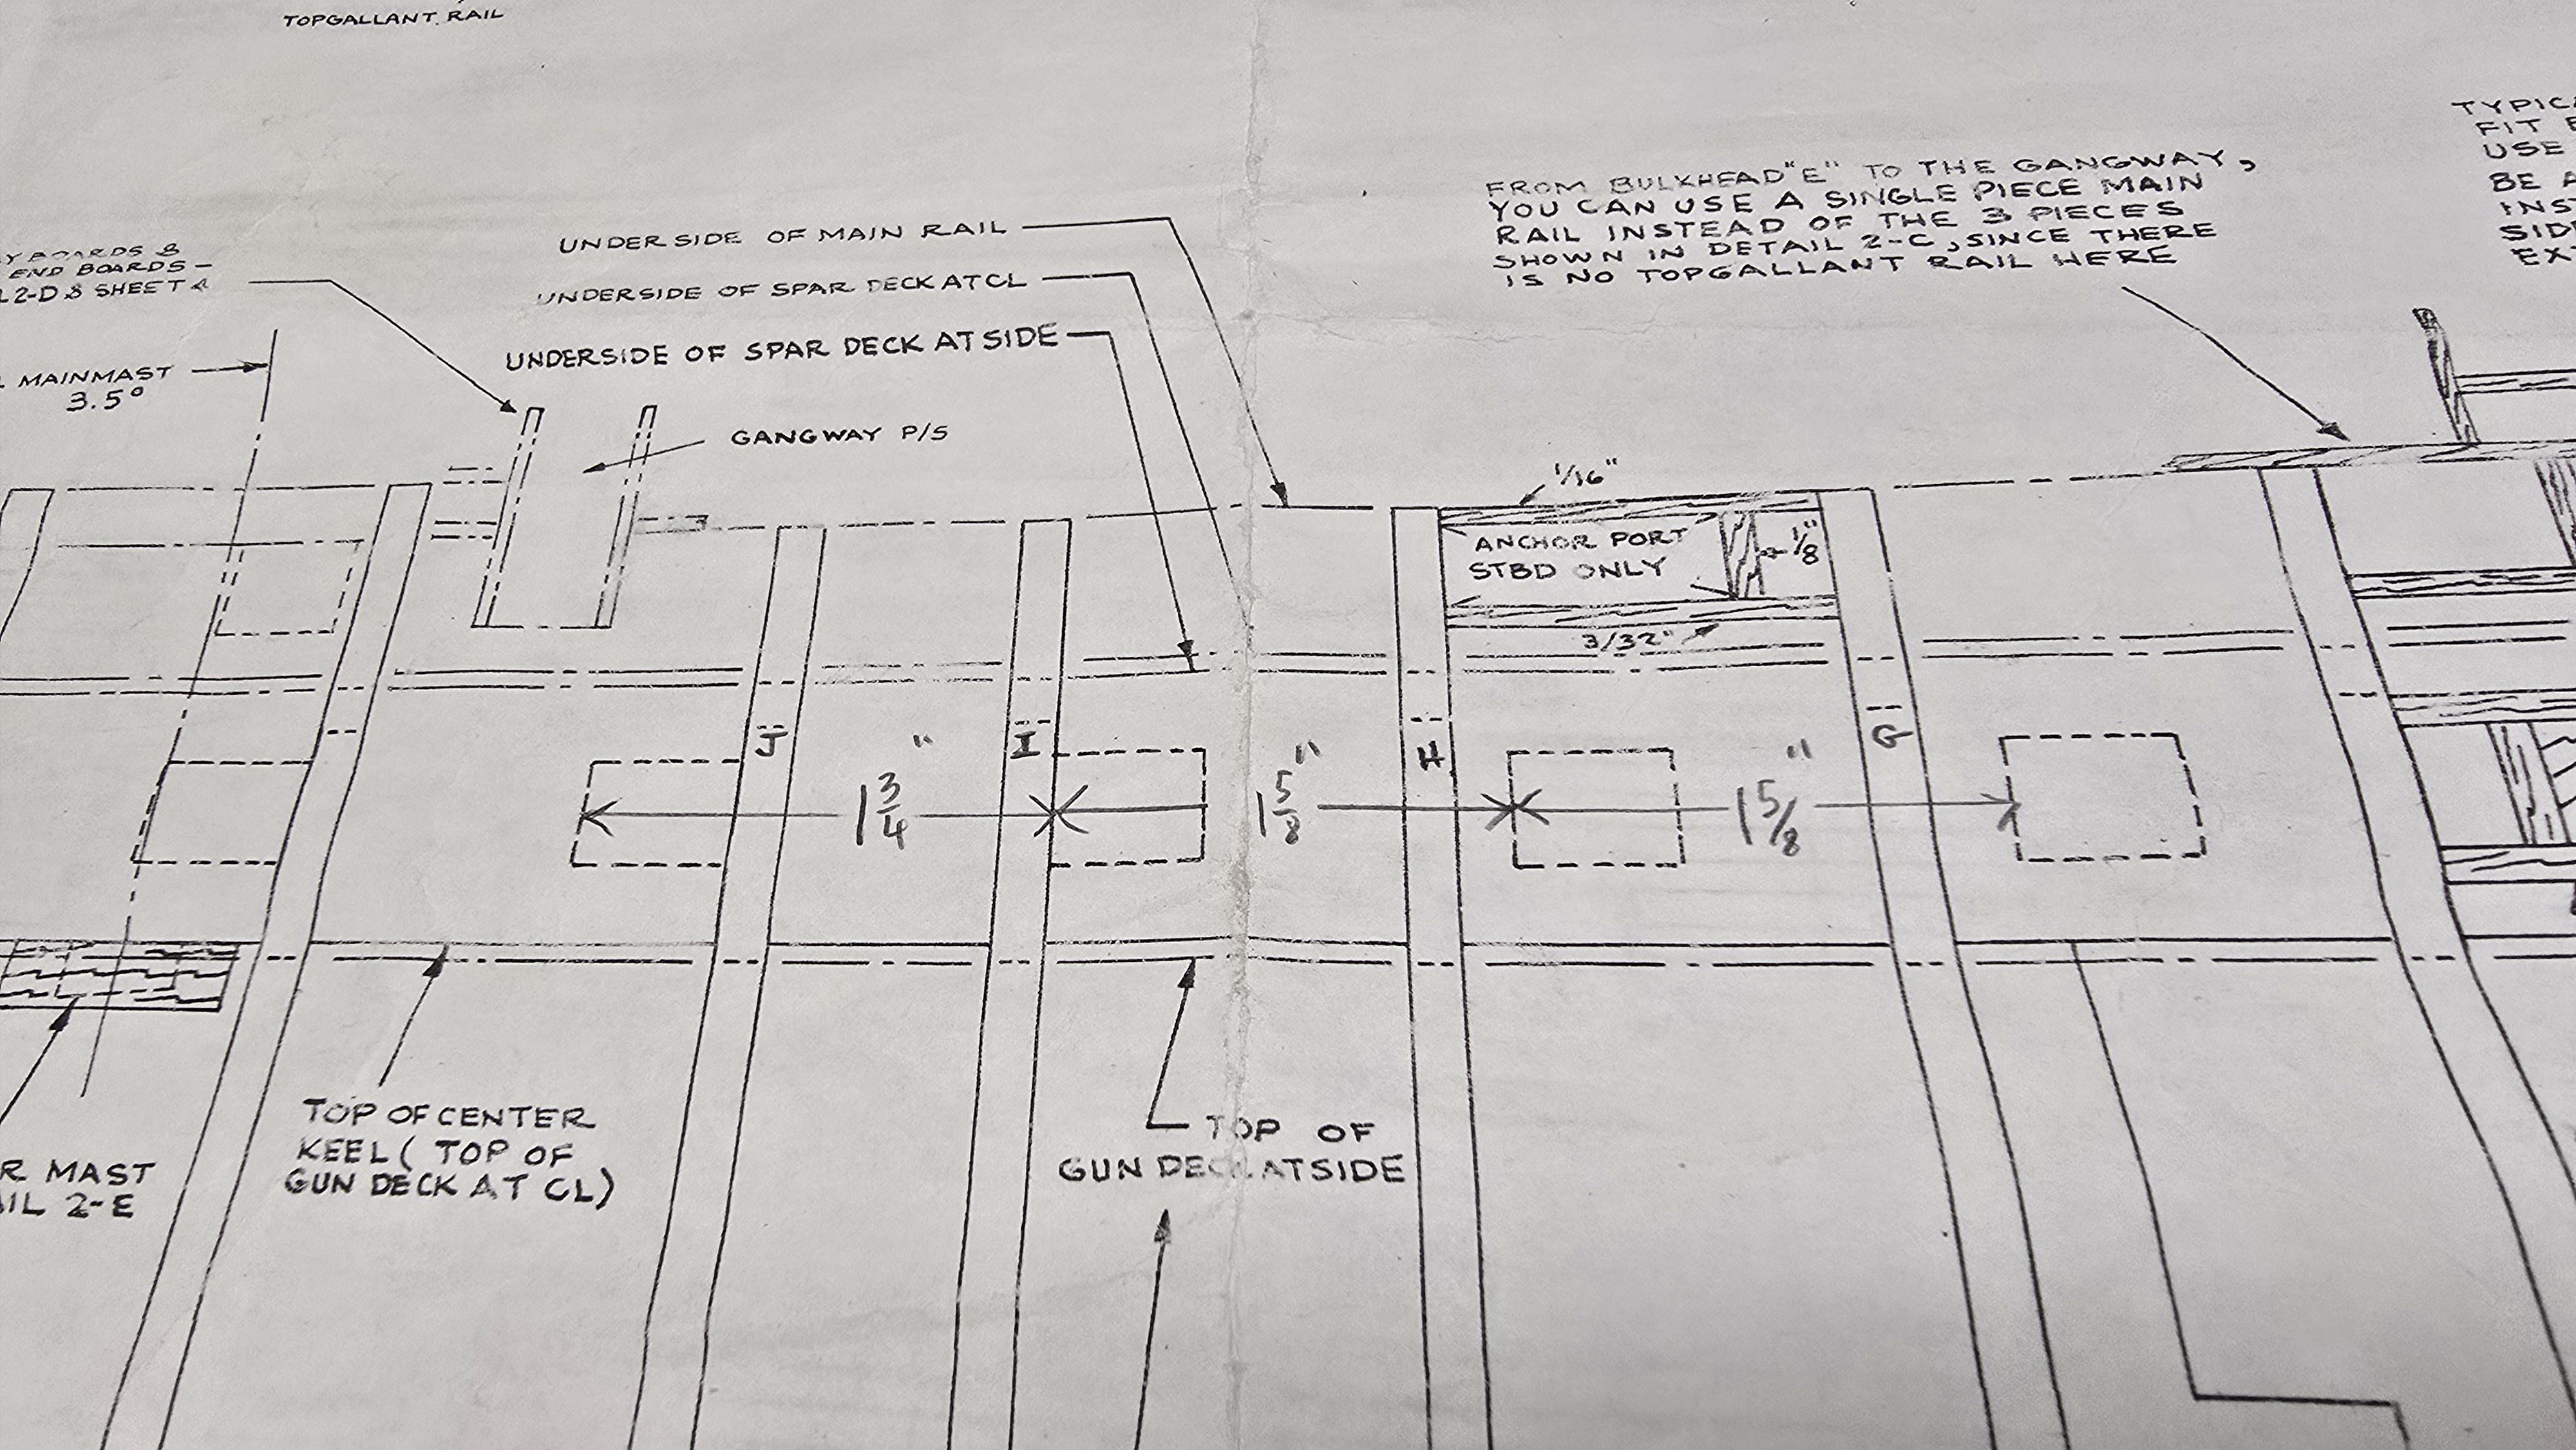 TOPGALLANT RAIL
BOARDS &
END BOARDS -
2-D & SHEET 4
MAINMAST
3.5°
UNDERSIDE OF MAIN RAIL
UNDERSIDE OF SPAR DECK AT CL
UNDERSIDE OF SPAR DECK AT SIDE
GANGWAY P/S
FROM BULKHEAD "E" TO THE GANGWAY,
YOU CAN USE A SINGLE PIECE MAIN
RAIL INSTEAD OF THE 3 PIECES
SHOWN IN DETAIL 2-C, SINCE THERE
IS NO TOPGALLANT RAIL HERE
TYPIC
FIT
USE
BE A
INST
SID
EX
1/16"
ANCHOR PORT
STBD ONLY
1/8"
3/32"
J
I
H
G
1 3/4"
1 5/8"
1 5/8"
TOP OF CENTER
KEEL ( TOP OF
GUN DECK AT CL)
TOP OF
GUN DECK AT SIDE
R MAST
IL 2-E